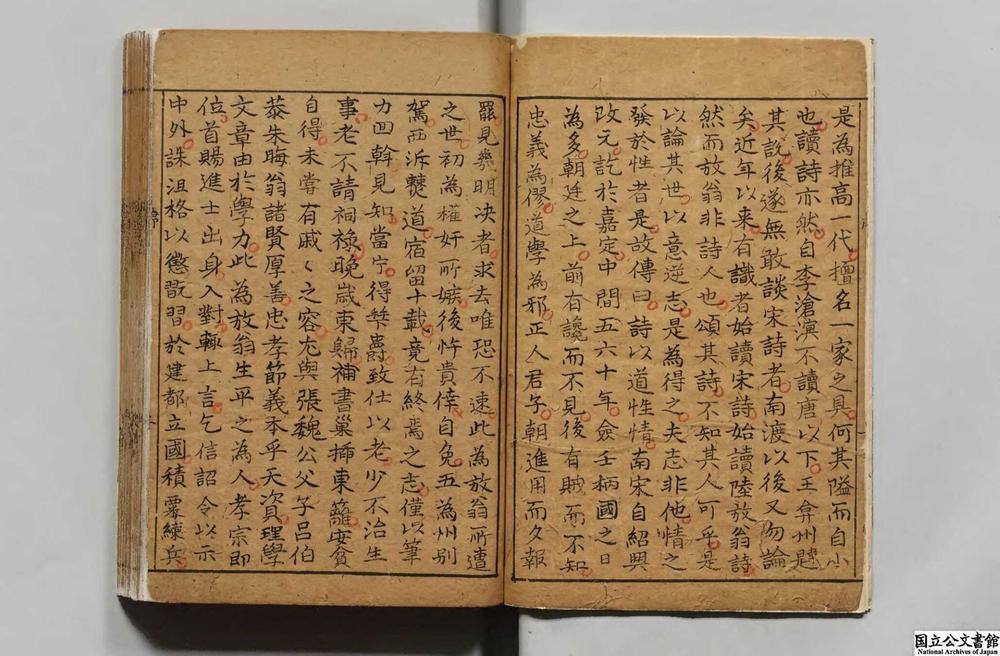 是為推高一代擅名一家之具何其隘而自小
也讀詩亦然自李滄溟不讀唐以下王弇州韙
其説後遂無敢談宋詩者南渡以後又勿論
矣近年以来有識者始讀宋詩始讀陸放翁詩
然而放翁非詩人也頌其詩不知其人可乎是
以論其世以意逆志是為得之夫志非他情之
發於性者是故傳曰詩以道性情南宋自紹興
改元訖於嘉定中間五六十年僉壬柄國之日
為多朝廷之上前有讒而不見後有賊而不知
忠義為僇道學為邪正人君子朝進用而夕報
罷見幾明决者求去唯恐不速此為放翁所遭
之世初為權奸所嫉後忤貴倖自免五為州别
駕西泝僰道宿留十載竟有終焉之志僅以筆
力回斡見知當宁得華爵致仕以老少不治生
事老不請祠祿晚歲東歸補書巢插東籬安貧
自得未嘗有戚々之容尤與張魏公父子呂伯
恭朱晦翁諸賢厚善忠孝節義本乎天資理學
文章由於學力此為放翁生平之為人孝宗即
位首賜進士出身入對輙上言乞信詔令以示
中外誅沮格以懲翫習於建都立國積粟練兵
国立公文書館
National Archives of Japan